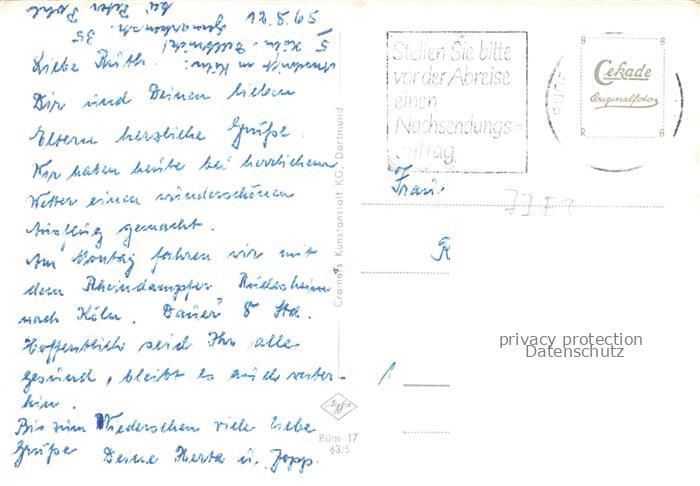 Liebe Ruth.
Dir und Deinen lieben
Eltern herzliche Grüße.
Wir haben heute bei herrlichem
Wetter einen wunderschönen
Ausflug gemacht.
Am Montag fahren wir mit
dem Rheindampfer "Rüdesheim"
nach Köln. Dauer 8 Std.
Hoffentlich seid Ihr alle
gesund, bleibt es auch weiter-
hin.
Bis zum Wiedersehen viele liebe
Grüße Deine Herta u. Jopp.
bei Peter
21.8.65
35
5 Köln-Dellbrück
Anschrift in Köln:
Cramers Kunstanstalt KG, Dortmund
Agfa
Rüm 17
63/5
Stellen Sie bitte
vor der Abreise
einen
Nachsendungs=
antrag
Cekade
Originalfoto
Frau
privacy protection
Datenschutz